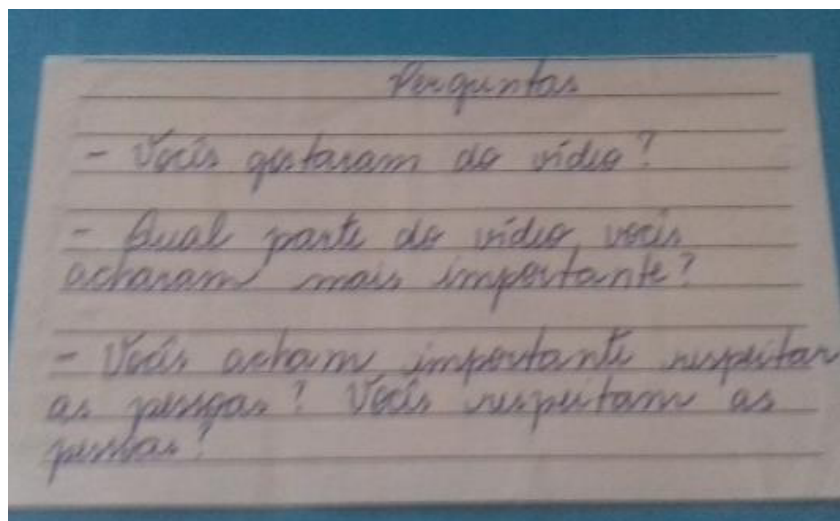 Perguntas
- Vocês gostaram do vídeo?
- Qual parte do vídeo vocês
acharam mais importante?
- Vocês acham importante respeitar
as pessoas? Vocês respeitam as
pessoas?